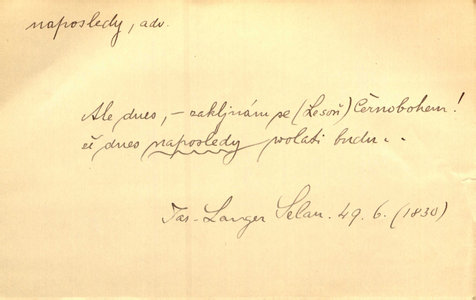 naposledy, adv.
Ale dnes, – zaklínám se (Lesoň) Černobohem!
eš dnes naposledy wolati budu..
Jar. Langer Selan. 49. 6. (1830)